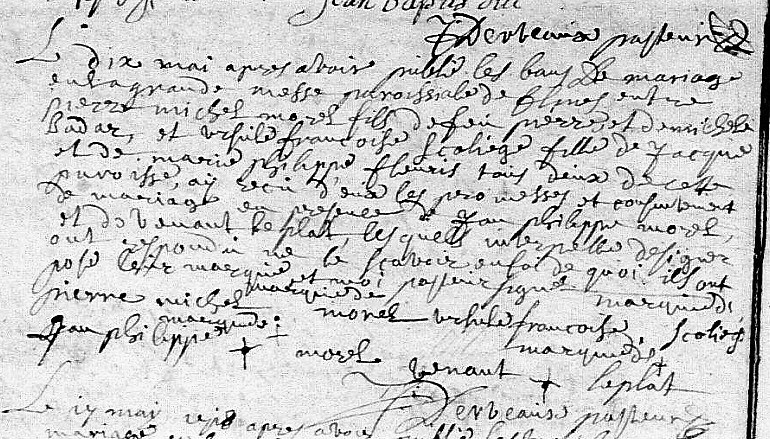 Jean Baptiste
Derveaux pasteur
Le dix mai apres avoir publié les bans de mariage
en la grande messe paroissiale de Elnes entre
pierre michel morel fils de feu pierre et de michele
Badar, et ursule francoise Scoliege fille de Jacque
et de marie philippe fleuris tous deux de cette
paroisse, ay recu d'eux les promesses et consentement
de mariage en presence de Jean philippe morel,
et de venant le plat, lesquels interpellé de signer
ont repondu ne le scavoir en foi de quoi ils ont
posé leur marque et moi pasteur signé
marque de marque de
pierre michel morel ursule francoise Scoliege
marque de marque de
Jean philippe + morel venant + le plat
Derveaux pasteur
Le 17 mai apres avoir publié les
mariage